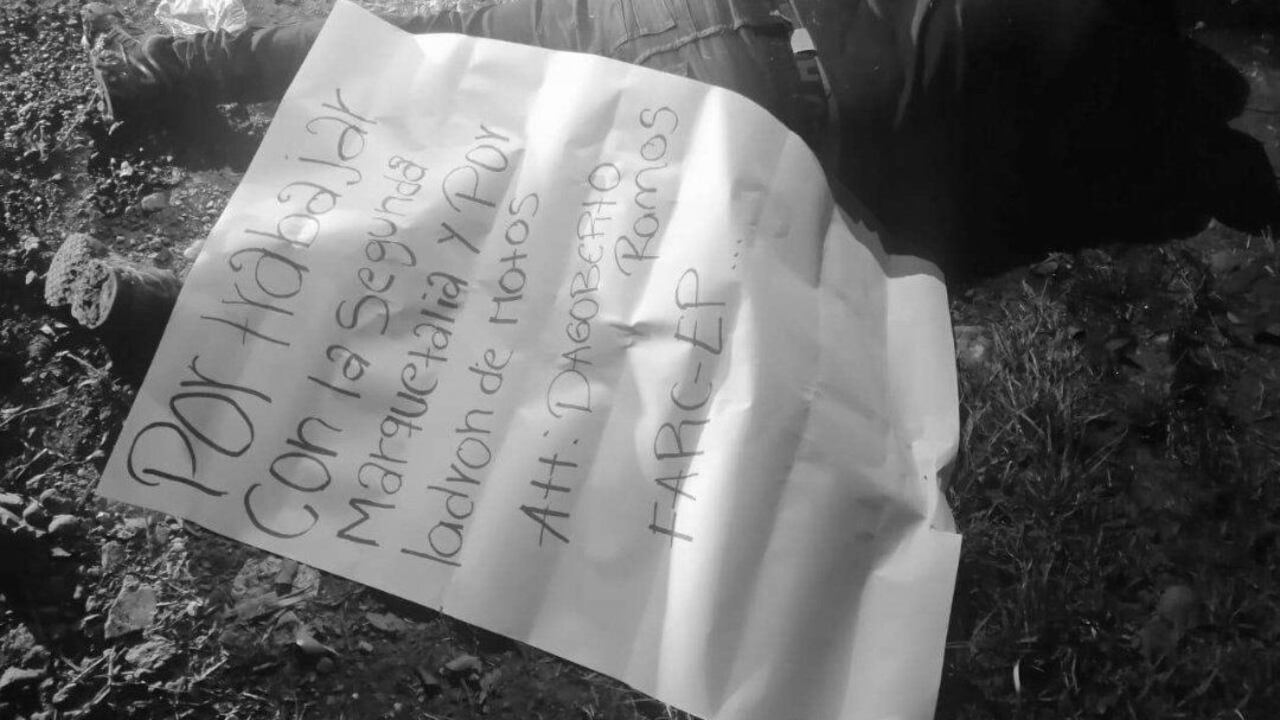 Por trabajar
Con la Segunda
Marquetalia y Por
ladron de Motos
Att: DAGOBERTO
Ramos
FARC-EP